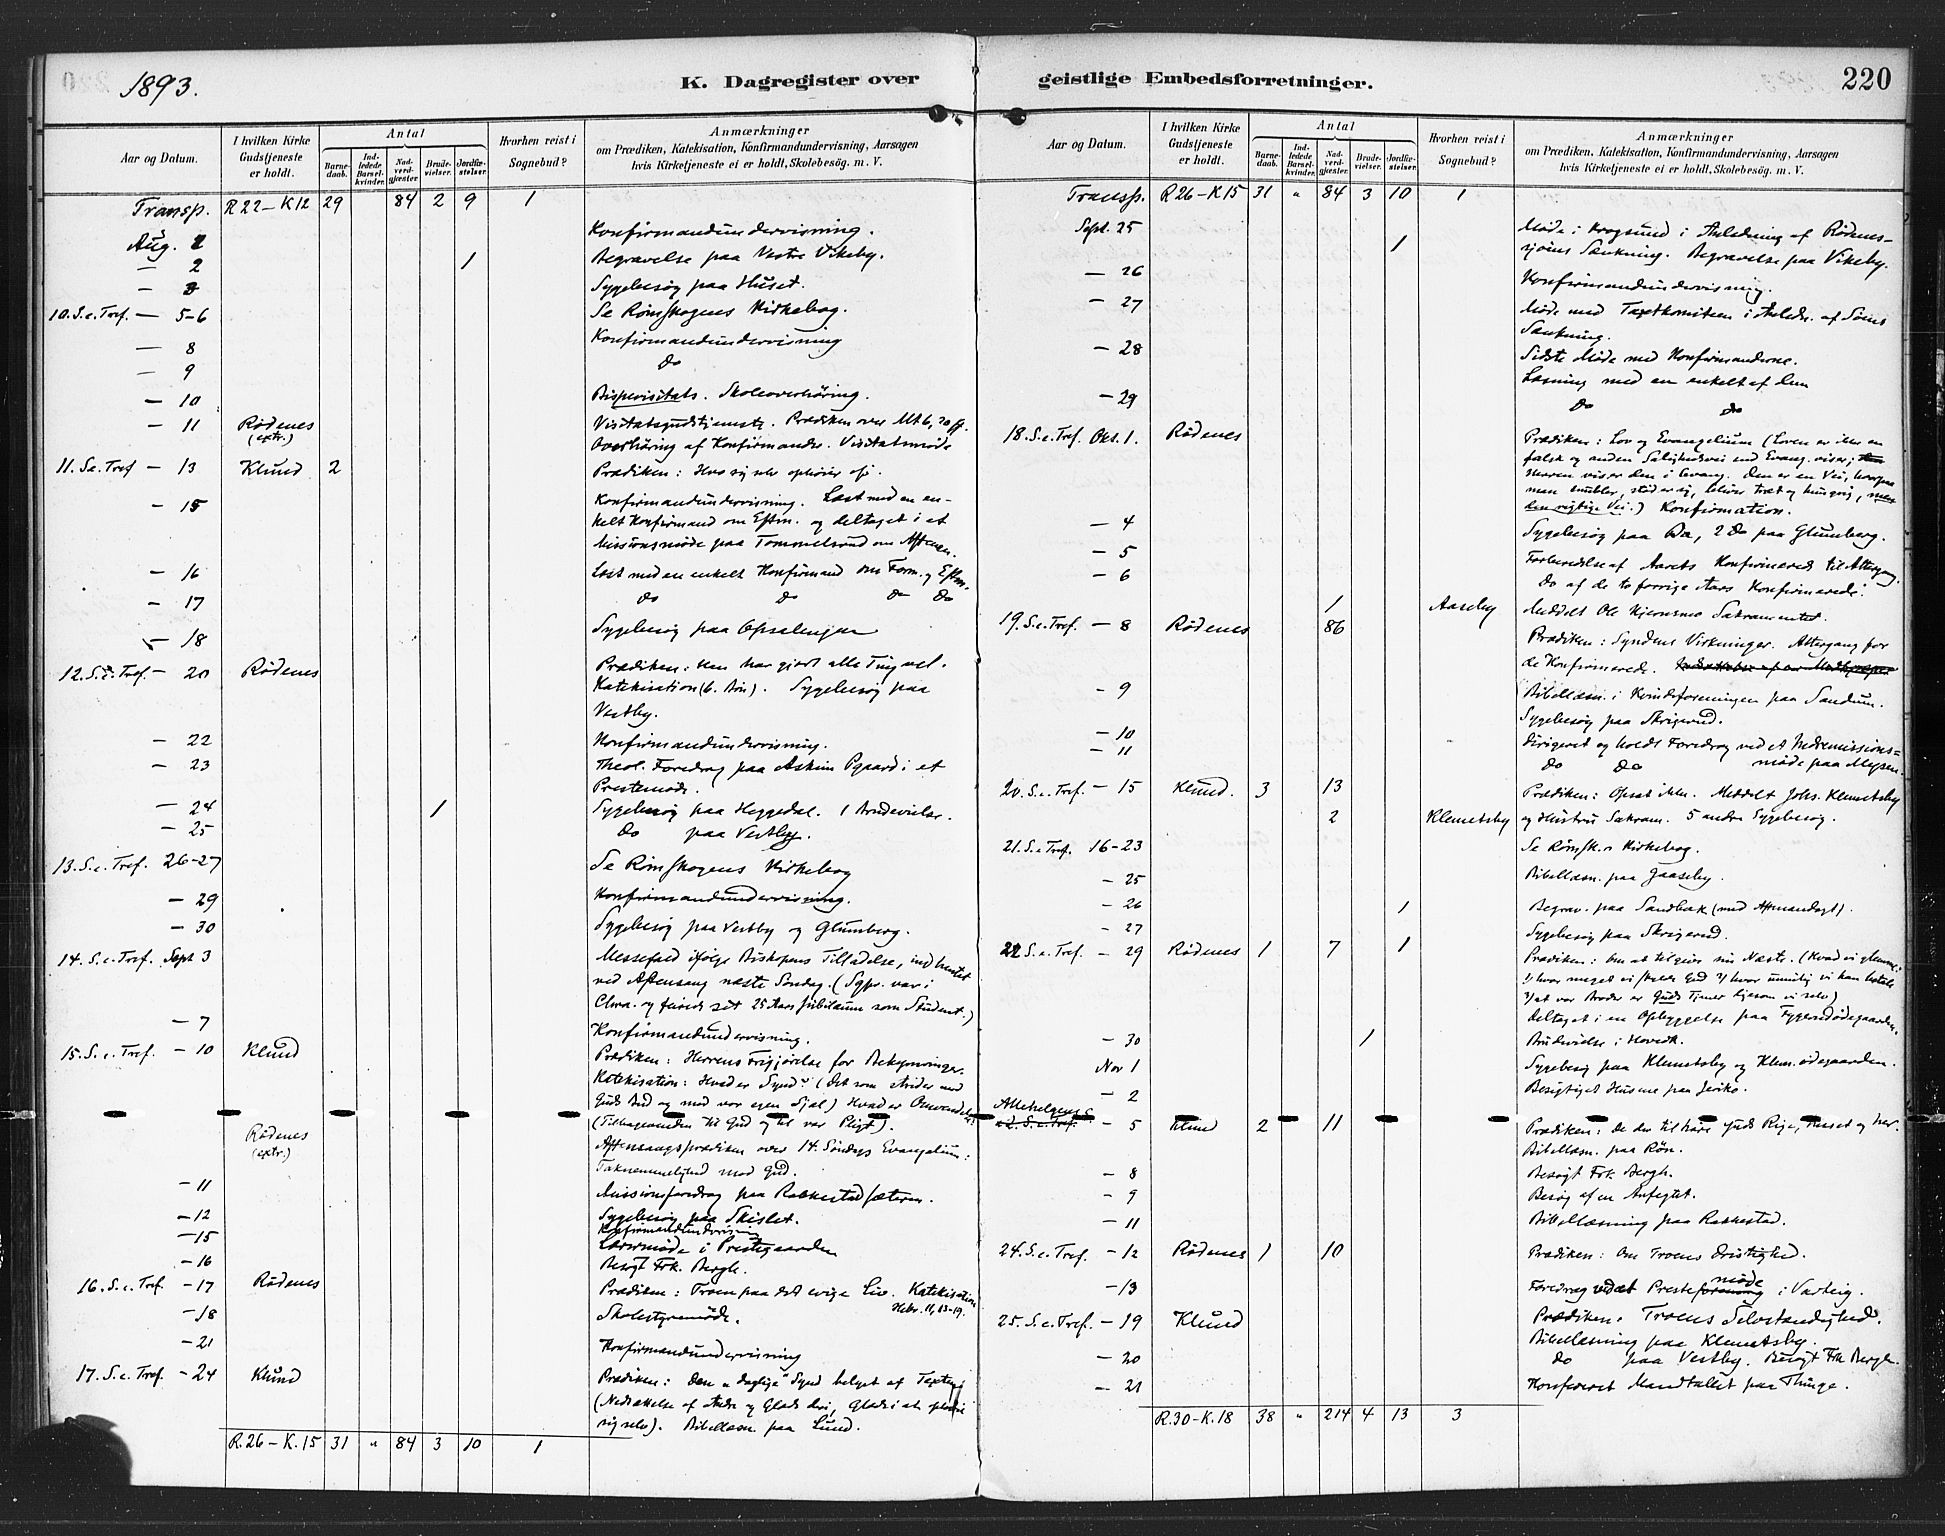 1893.
K. Dagregister over
Aar og Datum.
I hvilken Kirke Gudstjeneste er holdt.
Antal
Barnedaab.
Indledede Barselkvinder.
Nadverdgjæster
Brudevielser.
Jordfæstelser.
Hvorhen reist i Sognebud?
Anmærkninger
om Prædiken, Katekisation, Konfirmandundervisning, Aarsagen
hvis Kirketjeneste ei er holdt, Skolebesøg. m. V.
Transp. R22–K12 29 84 2 9 1
Aug. 2 Konfirmandundervisning.
— 2 1 Begravelse paa Vestre Vikeby.
— 3 Sygebesøg paa Huset.
10. S. e. Tref. — 5-6 Se Rømskogens Kirkebog.
— 8 Konfirmandundervisning
— 9 do
— 10 Bispevisitats. Skoleoverhøring.
— 11 Rødenes Visitatsgudstjeneste. Prædiken over Mt 6, 20 ff.
(extr.) Overhøring af Konfirmander. Visitatsmøde
11. S. e. Tref — 13 Klund 2 Prædiken: Hvo sig selv ophøier osv.
— 15 Konfirmandundervisning. Læst med en en-
kelt Konfirmand om Eftm. og deltaget i et
Missionsmøde paa Tommelsrud om Aftenen.
— 16 Læst med en enkelt Konfirmand om Form. og Eftm.
— 17 do do do do
— 18 Sygebesøg paa Opsalengen
12. S. e. Tref. — 20 Rødenes Prædiken: Han har gjort alle Ting vel.
Katekisation (6. Bøn). Sygebesøg paa
Vestby.
— 22 Konfirmandundervisning.
— 23 Theol. Foredrag paa Askim Pgaard i et
Prestemøde.
— 24 1 Sygebesøg paa Heggedal. 1 Brudevielse.
— 25 Do paa Vestby.
13. S. e. Tref. 26-27 Se Rømskogens Kirkebog
— 29 Konfirmandundervisning.
— 30 Sygebesøg paa Vestby og Glumberg.
14. S. e. Tref. Sept 3 Messefald ifølge Biskopens Tilladelse, indhentet
ved Aftensang næste Søndag. (Sgpr. var i
Chra. og feirede sit 25 Aars Jubilæum som Student.)
— 7 Konfirmandundervisning.
15. S. e. Tref. — 10 Klund Prædiken: Herrens Frigjørelse for Bekymringer.
Katekisation: Hvad er Synd? (Det som strider mod
Guds Bud og mod vor egen Sjæl) Hvad er Omvendelse?
(Tilbagevenden til Gud og til vor Pligt).
Rødenes Aftensangsprædiken over 14. Søndags Evangelium:
(extr.) Taknemmelighed mod Gud.
— 11 Missionsforedrag paa Rakkestadsæteren.
— 12 Sygebesøg paa Skislet.
Konfirmandundervisning
— 15 Lærermøde i Prestegaarden
— 16 Besøgt Frk. Bergh.
16. S. e. Tref. — 17 Rødenes Prædiken: Troen paa det evige Liv. Katekisation
Hebr. 11, 13-19.
— 18 Skolestyremøde.
— 21 Konfirmandundervisning
17. S. e. Tref. — 24 Klund Prædiken: Den "daglige" Synd belyst af Texten
(Nedsættelse af Andre og Glæde
sig selv). Bibellæsn. paa Lund.
R.26–K.15 31 " 84 3 10 1
geistlige Embedsforretninger.
220
Aar og Datum.
I hvilken Kirke Gudstjeneste er holdt.
Antal
Barnedaab.
Indledede Barselkvinder.
Nadverdgjæster
Brudevielser.
Jordfæstelser.
Hvorhen reist i Sognebud?
Anmærkninger
om Prædiken, Katekisation, Konfirmandundervisning, Aarsagen
hvis Kirketjeneste ei er holdt, Skolebesøg. m. V.
Transp. R26–K15 31 " 84 3 10 1
Sept. 25 Møde i Krogsund i Anledning af Rødenes-
1 sjøens Sænkning. Begravelse paa Vikeby.
— 26 Konfirmandundervisning.
— 27 Møde med Taxtkomiteen i Anledn. af Søens
Sænkning.
— 28 Sidste Møde med Konfirmanderne.
Læsning med en enkelt af dem
— 29 Do do
18. S. e. Tref. Okt. 1. Rødenes Prædiken: Lov og Evangelium (Loven er ikke en
falsk og anden Salighedsvei end Evang. viser;
Herren viser den i Evang. Den er en Vei, hvorpaa
man snubler, støder sig, bliver træt og hungrig, men
den rigtige Vei.) Konfirmation.
— 4 Sygebesøg paa Bøn, 2 do paa Glumberg.
— 5 Forberedelse af Aarets Konfirmerede til Altergang.
— 6 Do af de to forrige Aars Konfirmerede.
1 Aaseby Meddelt Ole Kjernsmo Sakramentet.
19. S. e. Tref. — 8 Rødenes 86 Prædiken: Syndens Virkninger. Altergang for
de Konfirmerede.
— 9 Bibellæsn. i Kvindeforeningen paa Sandum.
Sygebesøg paa Skrigerud.
— 10 Dirigeret og holdt Foredrag ved et Indremissions=
— 11 Do Do møde paa Mysen.
20. S. e. Tref. — 15 Klund. 3 13 Prædiken: Opsæt ikke. Meddelt Johs. Klemetsby
2 Klemetsby og Hustru Sakram. 5 andre Sygebesøg.
21. S. e. Tref. 16-23 Se Rømsk.s Kirkebog.
— 25 Bibellæsn. paa Gaaseby.
— 26 1 Begrav. paa Sandbæk (med Aftenandagt).
— 27 Sygebesøg paa Skrigerud.
22 S. e. Tref. — 29 Rødenes 1 7 1 Prædiken: Om at tilgive sin Næste. (Hvad vi glemme:
1) hvor meget vi skylder Gud 2) hvor umulig vi kan betale
3) at vor Broder er Guds Tjener ligesom vi selv)
Deltaget i en Opbyggelse paa Tyggersødegaarden.
— 30 1 Brudevielse i Hovedk.
Nov 1 Sygebesøg paa Klemetsby og Klem.ødegaarden.
— 2 Besigtiget Husene paa Jeriko.
Allehelgens S.
— 5 Klund 2 11 Prædiken: De der tilhøre Guds Rige, Huset og her.
Bibellæsn. paa Røn.
— 8 Besøgt Frk Bergh.
— 9 Besøg af en Anfegtet.
— 11 Bibellæsning paa Rakkestad.
24. S. e. Tref. — 12 Rødenes 1 10 Prædiken: Om Troens Dristighed.
— 13 Foredrag ved et Prestemøde i Varteig.
25. S. e. Tref. — 19 Klund Prædiken: Troens Selvstændighed.
Bibellæsning paa Klemetsby.
— 20 Do paa Vestby. Besøgt Frk Bergh.
— 21 Konfereret Mandtallet paa Thinge.
R.30–K.18 38 " 214 4 13 3